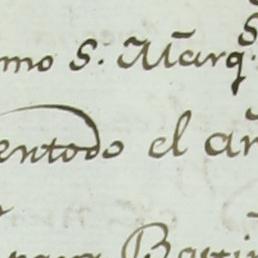 mo S. Marq.
entodo el añ
para Bauti